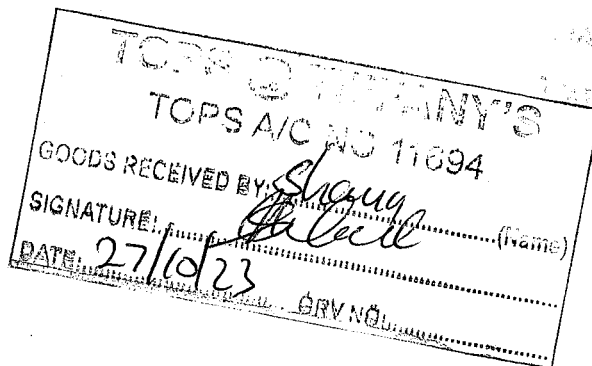 TOPS @ TIFFANY'S
TOPS A/C NO 11694
GOODS RECEIVED BY: Shaun (Name)
SIGNATURE:
DATE: 27/10/23 GRV NO: